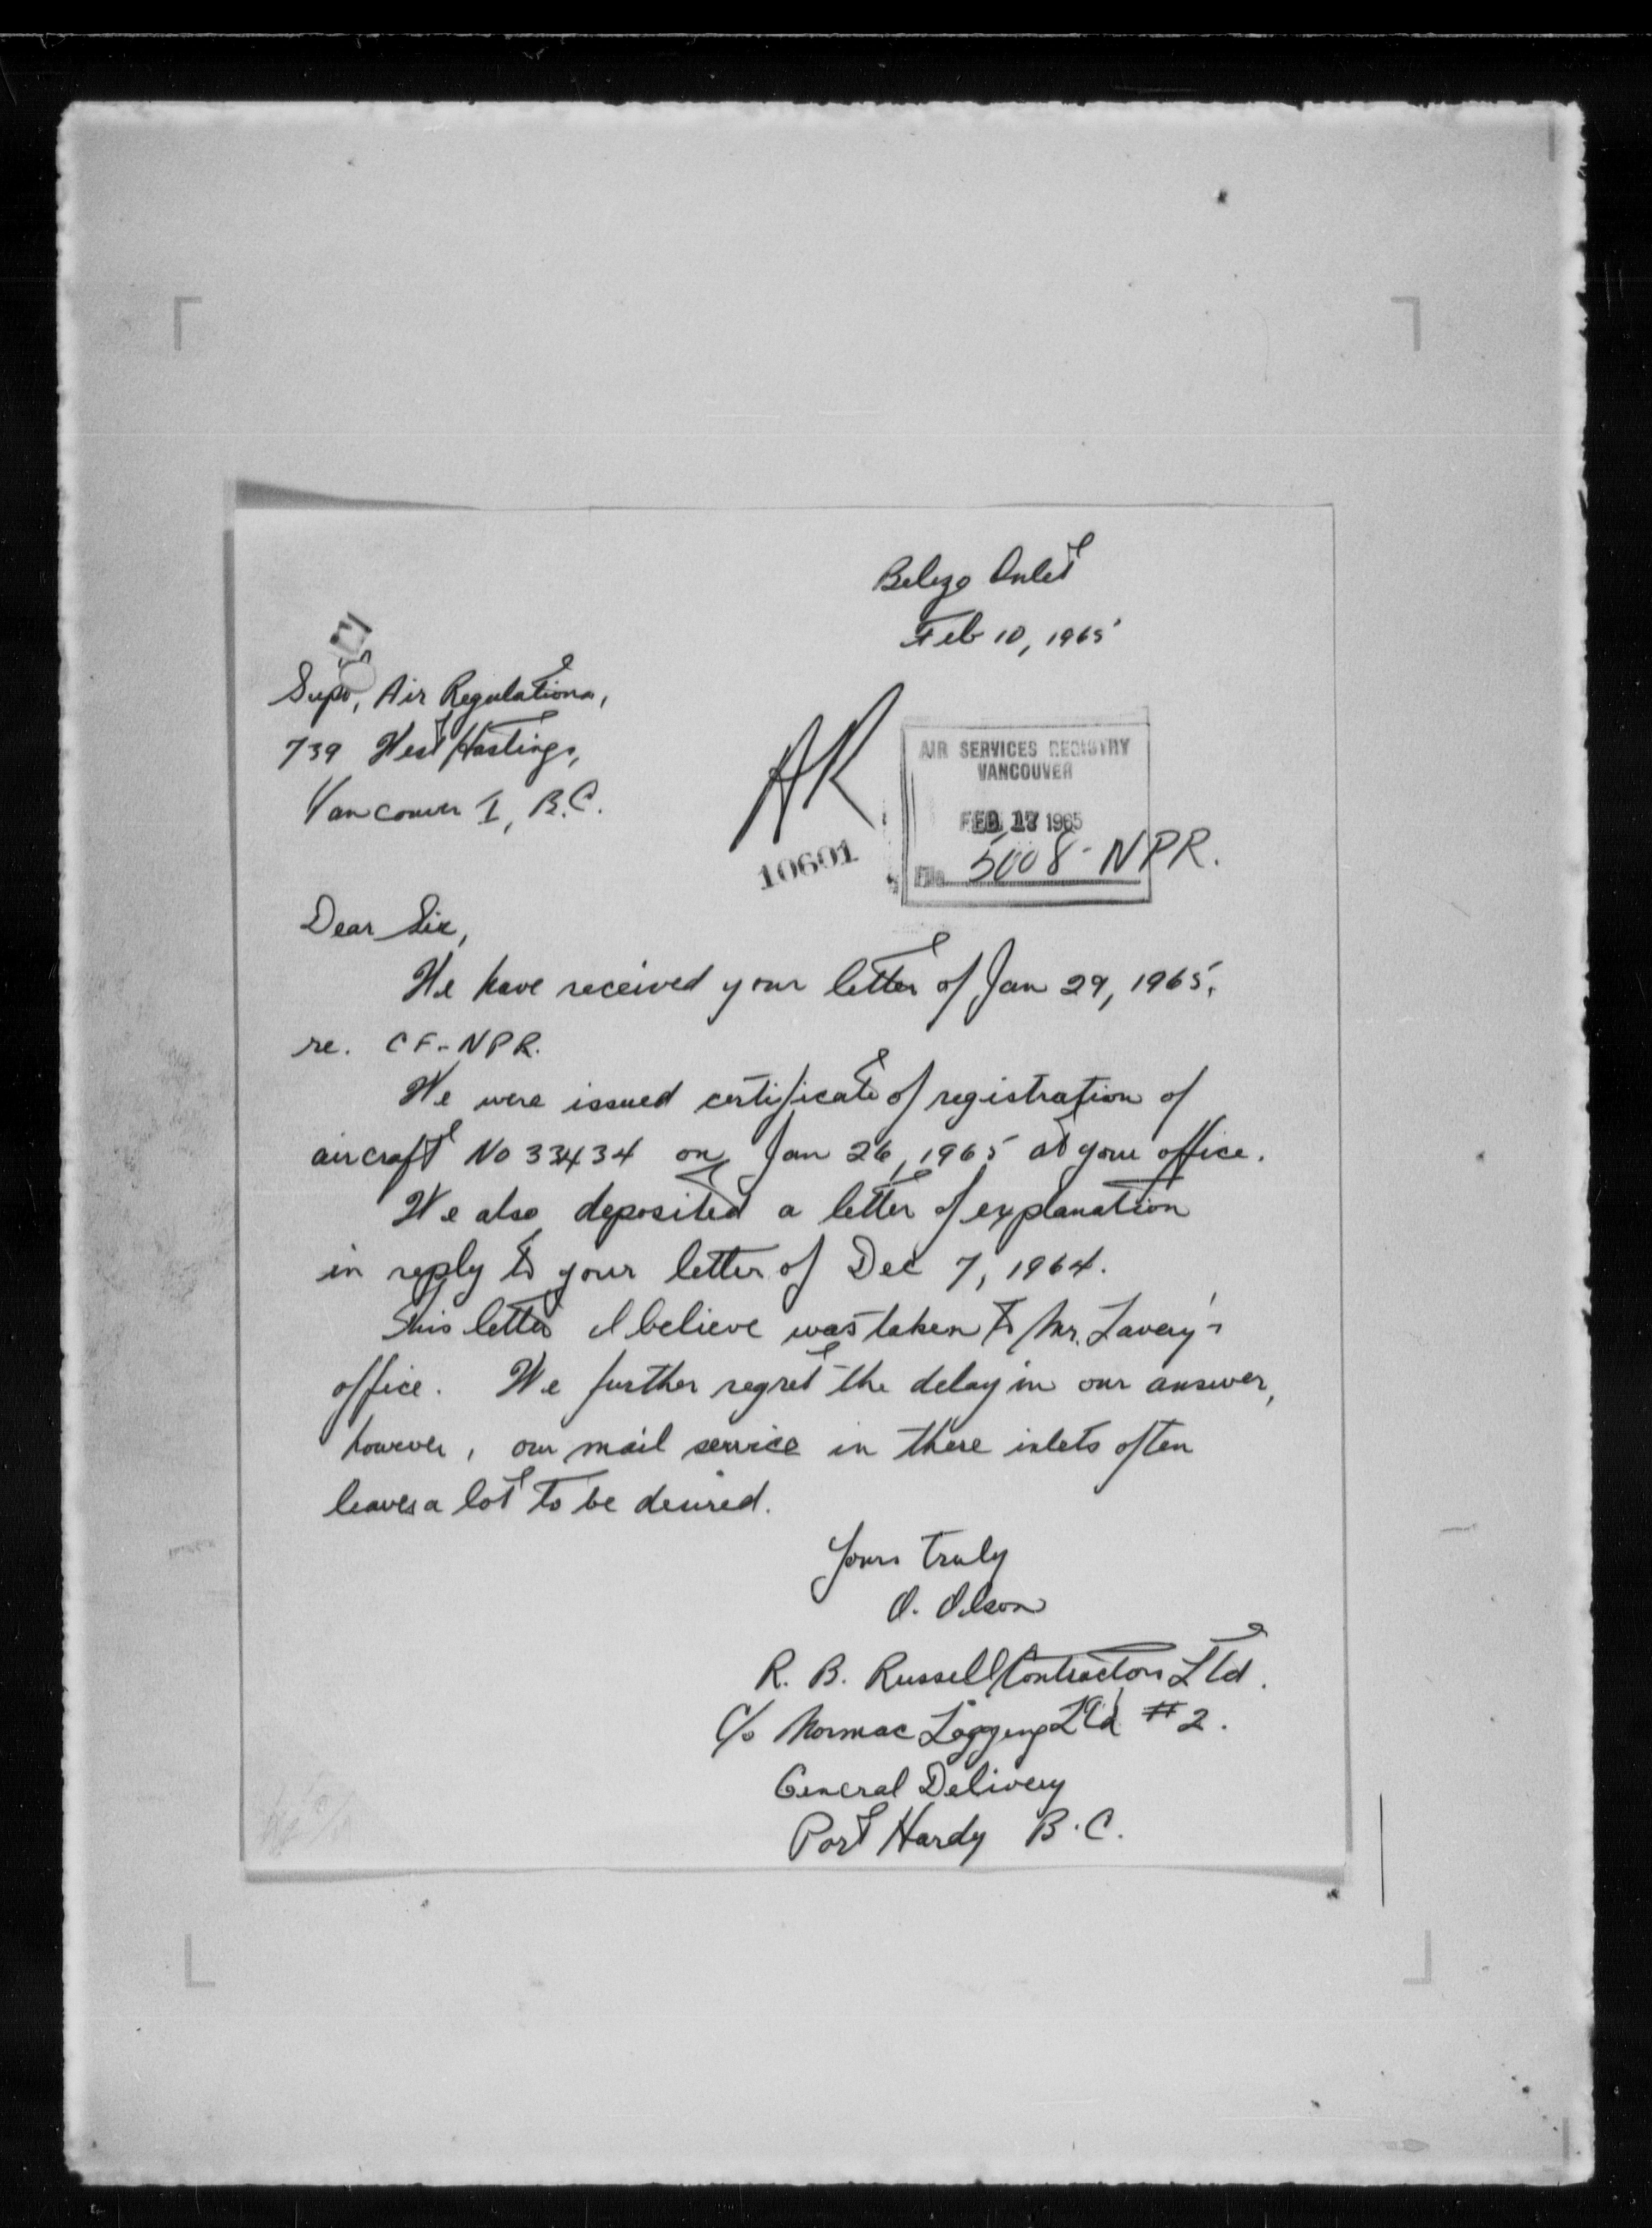 Belize Inlet
Feb 10, 1965
Supt, Air Regulations,
739 West Hastings,
Vancouver 1, B.C.
AR
10601
AIR SERVICES REGISTRY
VANCOUVER
FEB 17 1965
File 5008-NPR.
Dear Sir,
We have received your letter of Jan 29, 1965,
re. CF-NPR.
We were issued certificate of registration of
aircraft No 33434 on Jan 26, 1965 at your office.
We also deposited a letter of explanation
in reply to your letter of Dec 7, 1964.
This letter I believe was taken to Mr. Lavery's
office. We further regret the delay in our answer,
however, our mail service in these inlets often
leaves a lot to be desired.
Yours truly
O. Olson
R. B. Russell Contractors Ltd.
C/o Normac Logging Ltd #2.
General Delivery
Port Hardy B.C.